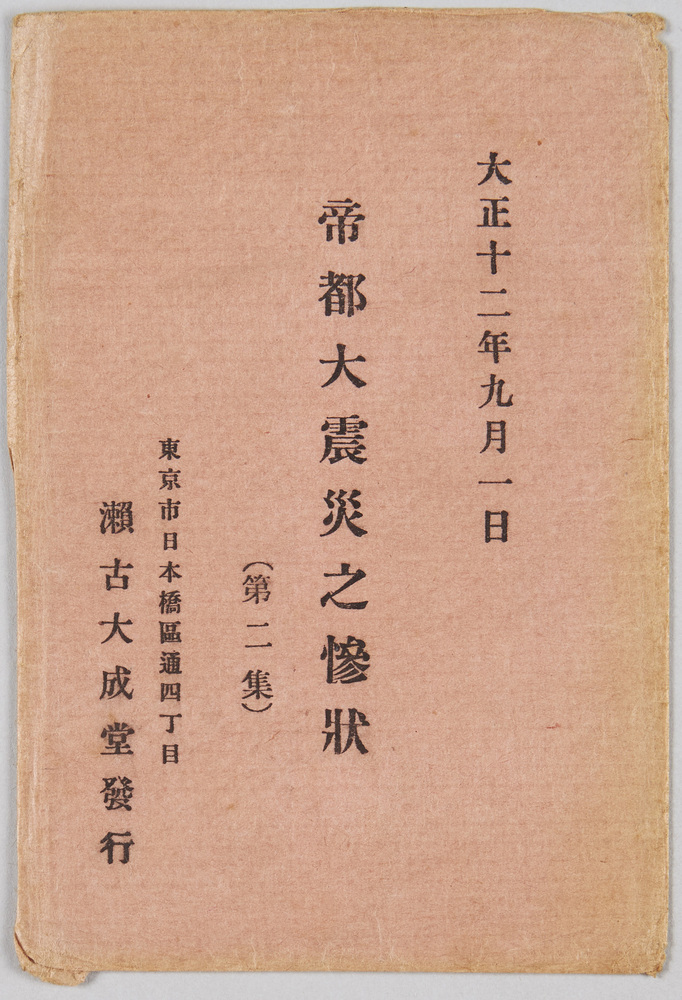 大正十二年九月一日
帝都大震災之慘狀
（第二集）
東京市日本橋區通四丁目
瀨古大成堂發行